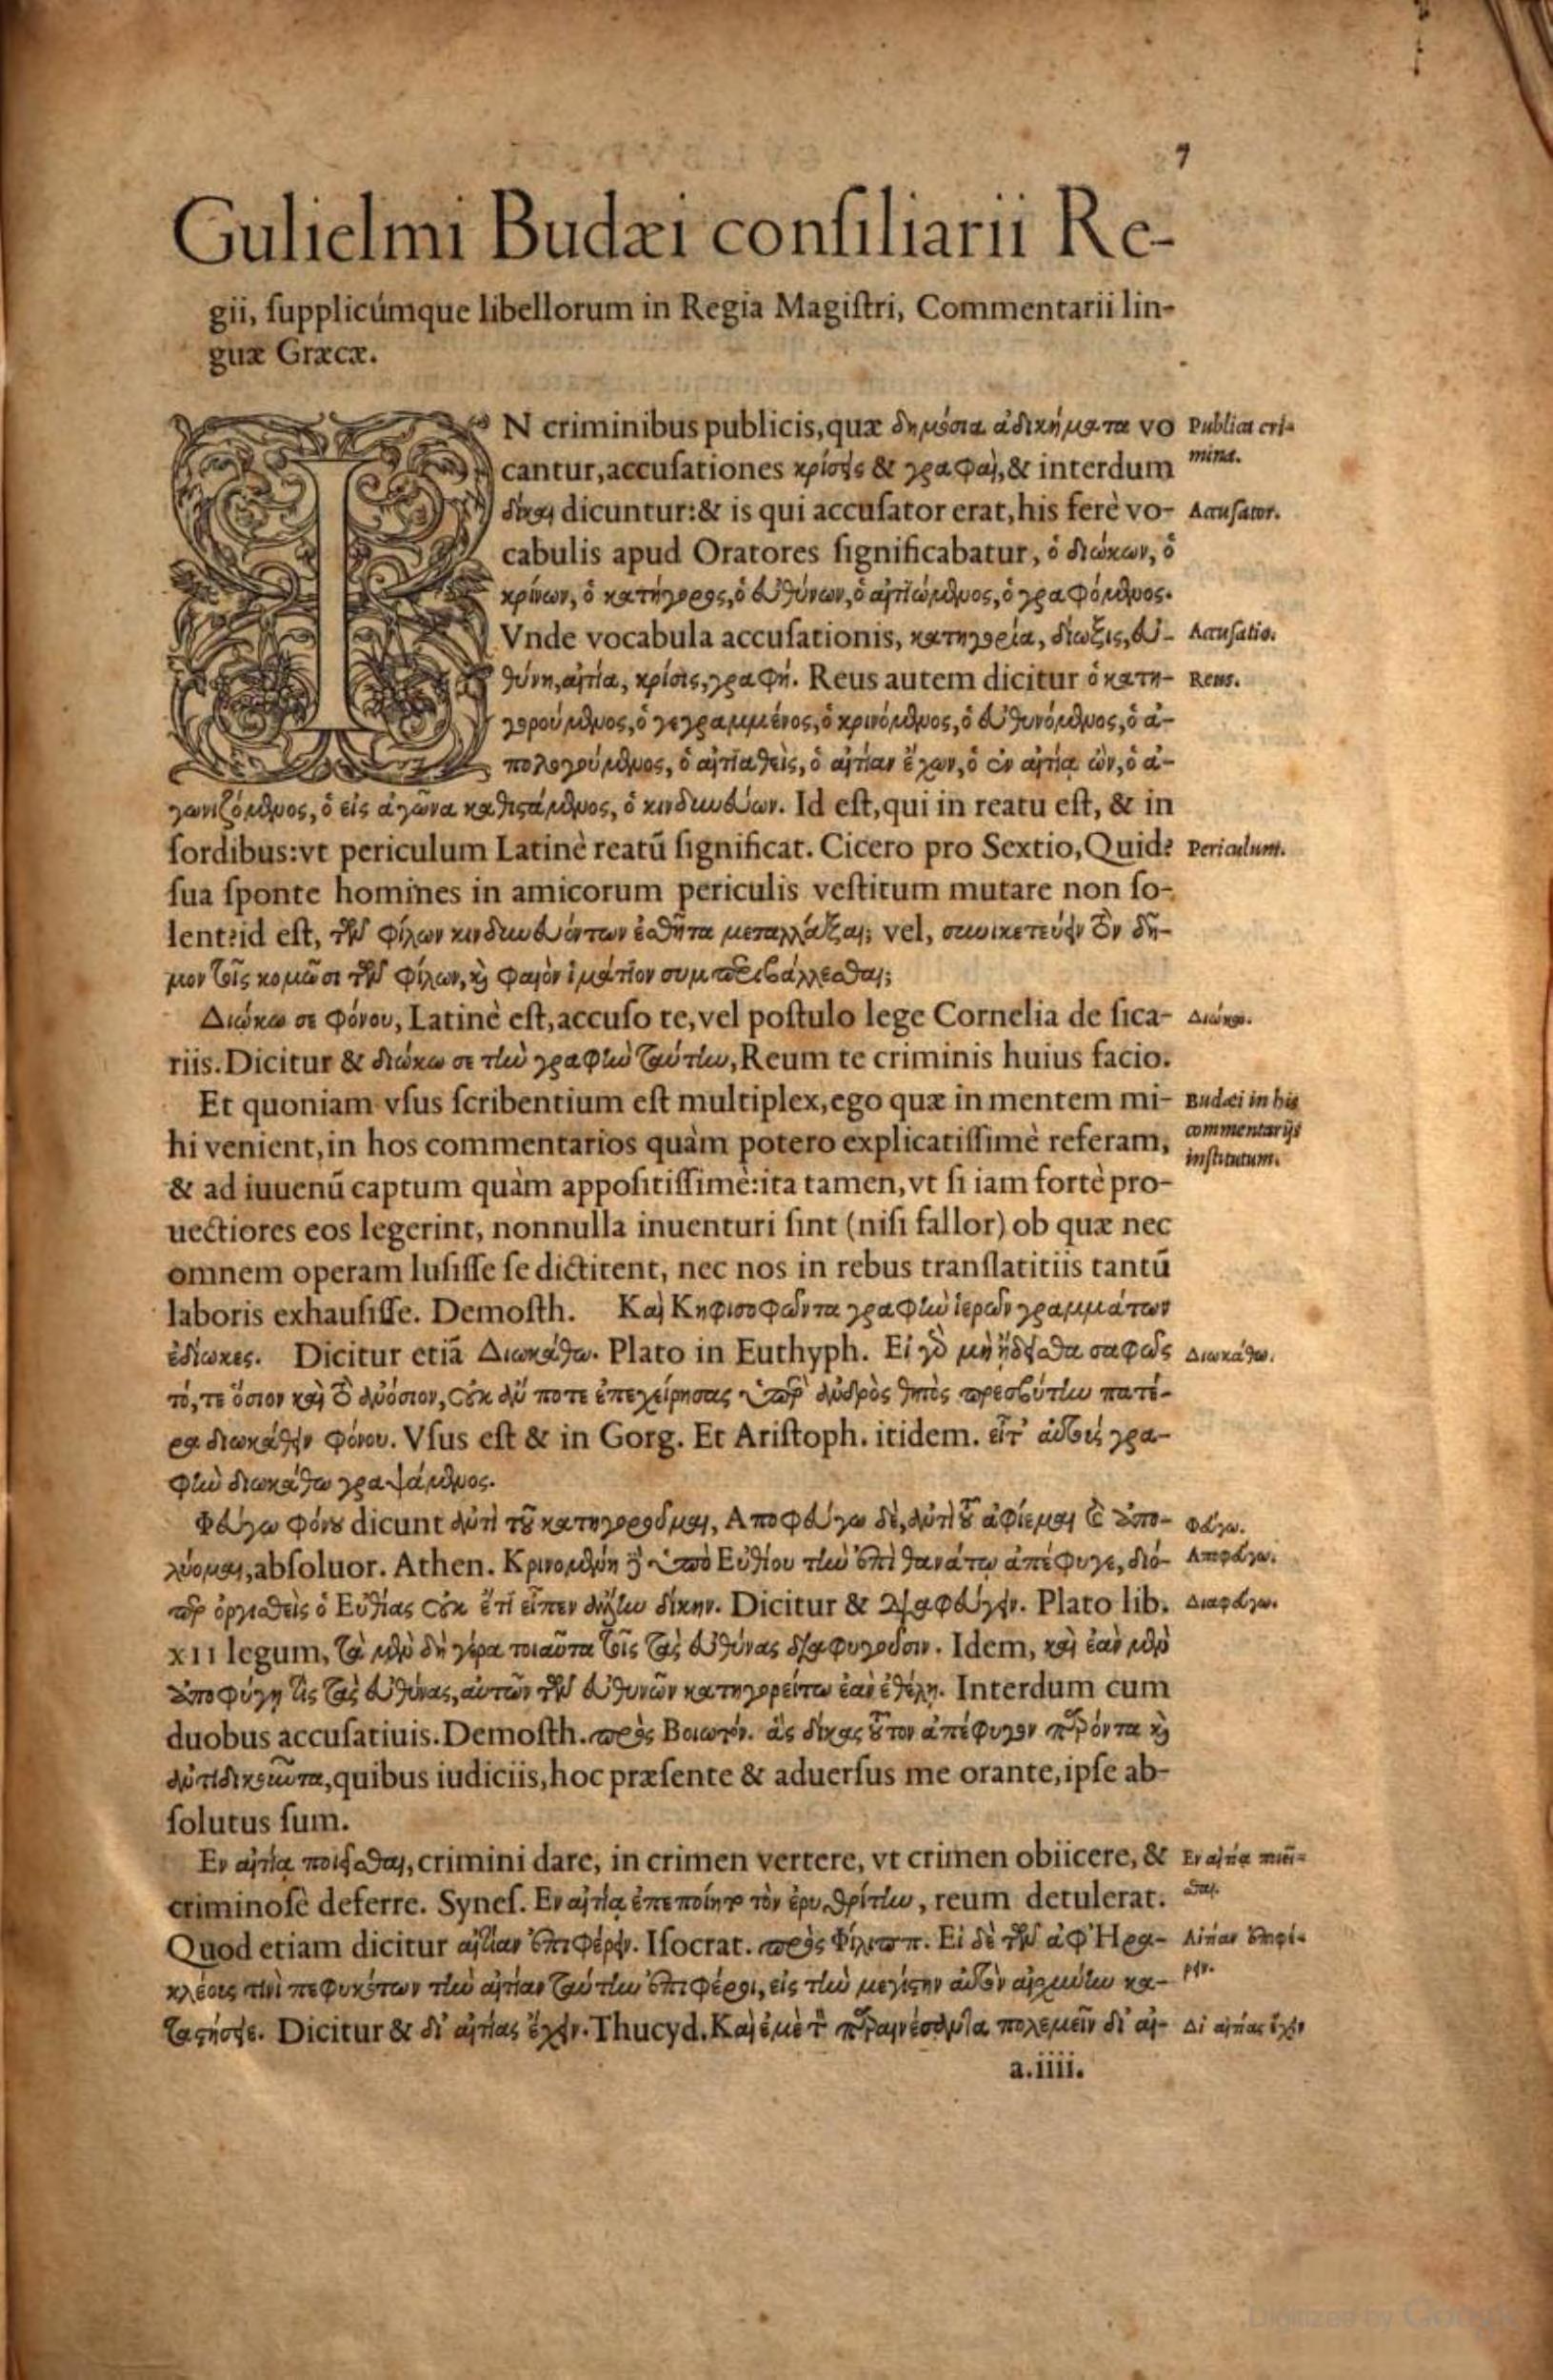 7
Gulielmi Budæi conſiliarii Re-
gii, ſupplicúmque libellorum in Regia Magiſtri, Commentarii lin-
guæ Græcæ.
IN criminibus publicis, quæ δημόσια ἀδικήματα vo
Publica cri-
mina.
cantur, accuſationes κρίσεις & γραφαὶ, & interdum
δίκαι dicuntur: & is qui accuſator erat, his ferè vo-
Accuſator.
cabulis apud Oratores ſignificabatur, ὁ διώκων, ὁ
κρίνων, ὁ κατήγορος, ὁ εὐθύνων, ὁ αἰτιώμενος, ὁ γραφόμενος.
Vnde vocabula accuſationis, κατηγορία, δίωξις, εὐ-
Accuſatio.
θύνη, αἰτία, κρίσις, γραφή. Reus autem dicitur ὁ κατη-
Reus.
γορούμενος, ὁ γεγραμμένος, ὁ κρινόμενος, ὁ εὐθυνόμενος, ὁ ἀ-
πολογούμενος, ὁ αἰτιαθεὶς, ὁ αἰτίαν ἔχων, ὁ ἐν αἰτίᾳ ὢν, ὁ ἀ-
γωνιζόμενος, ὁ εἰς ἀγῶνα καθιςάμενος, ὁ κινδυνεύων. Id eſt, qui in reatu eſt, & in
ſordibus: vt periculum Latinè reatū ſignificat. Cicero pro Sextio, Quid?
Periculum.
ſua ſponte homines in amicorum periculis veſtitum mutare non ſo-
lent? id eſt, τῶν φίλων κινδυνευόντων ἐσθῆτα μεταλλάξαι; vel, συνικετεύειν τὸν δῆ-
μον τοῖς κομῶσι τῶν φίλων, καὶ φαιὸν ἱμάτιον συμπεριβάλλεσθαι;
Διώκω σε φόνου, Latinè eſt, accuſo te, vel poſtulo lege Cornelia de ſica-
Διώκω.
riis. Dicitur & διώκω σε τὴν γραφὴν ταύτην, Reum te criminis huius facio.
Et quoniam vſus ſcribentium eſt multiplex, ego quæ in mentem mi-
Budæi in his
commentarijs
inſtitutum.
hi venient, in hos commentarios quàm potero explicatiſſimè referam,
& ad iuuenū captum quàm appoſitiſſimè: ita tamen, vt ſi iam fortè pro-
uectiores eos legerint, nonnulla inuenturi ſint (niſi fallor) ob quæ nec
omnem operam luſiſſe ſe dictitent, nec nos in rebus tranſlatitiis tantū
laboris exhauſiſſe. Demoſth. Καὶ Κηφισοφῶντα γραφὴν ἱερῶν γραμμάτων
ἐδίωκες. Dicitur etiā Διωκάθω. Plato in Euthyph. Εἰ γὰρ μὴ ᾔδεισθα σαφῶς
Διωκάθω.
τό, τε ὅσιον καὶ τὸ ἀνόσιον, οὐκ ἄν ποτε ἐπεχείρησας ὑπὲρ ἀνδρὸς θητὸς πρεσβύτην πατέ-
ρα διωκάθειν φόνου. Vſus eſt & in Gorg. Et Ariſtoph. itidem. εἶτ' αὖθις γρα-
φὴν διωκάθω γραψάμενος.
Φεύγω φόνου dicunt ἀντὶ τοῦ κατηγοροῦμαι, Αποφεύγω δὲ, ἀντὶ τοῦ ἀφίεμαι καὶ ἀπο-
Φεύγω.
λύομαι, abſoluor. Athen. Κρινομένη δὲ ὑπὸ Εὐθίου τὴν ἐπὶ θανάτῳ ἀπέφυγε, διό-
Αποφεύγω.
περ ὀργισθεὶς ὁ Εὐθίας οὐκ ἔτι εἶπεν ἄλλην δίκην. Dicitur & Διαφεύγειν. Plato lib.
Διαφεύγω.
XII legum, τὰ μὲν δὴ γέρα τοιαῦτα τοῖς τὰς εὐθύνας διαφυγοῦσιν. Idem, καὶ ἐὰν μὲν
ἀποφύγῃ τις τὰς εὐθύνας, αὐτῶν τῶν εὐθυνῶν κατηγορείτω ἐὰν ἐθέλῃ. Interdum cum
duobus accuſatiuis. Demoſth. πρὸς Βοιωτόν. ἃς δίκας τοῦτον ἀπέφυγον παρόντα καὶ
ἀντιδικοῦντα, quibus iudiciis, hoc præſente & aduerſus me orante, ipſe ab-
ſolutus ſum.
Εν αἰτίᾳ ποιεῖσθαι, crimini dare, in crimen vertere, vt crimen obiicere, &
Εν αἰτίᾳ ποιεῖ-
σθαι.
criminoſè deferre. Syneſ. Εν αἰτίᾳ ἐπεποίητο τὸν ἐρυθρίτην, reum detulerat.
Quod etiam dicitur αἰτίαν ἐπιφέρειν. Iſocrat. πρὸς Φίλιππ. Εἰ δὲ τῶν ἀφ' Ηρα-
Αἰτίαν ἐπιφέ-
ρειν.
κλέους τινὶ πεφυκότων τὴν αἰτίαν ταύτην ἐπιφέροι, εἰς τὴν μεγίςην αὐτὸν αἰσχύνην κα-
ταςήσειε. Dicitur & δι' αἰτίας ἔχειν. Thucyd. Καὶ ἐμὲ τὸν παραινέσαντα πολεμεῖν δι' αἰ-
Δι' αἰτίας ἔχειν
a.iiii.
Digitized by Google